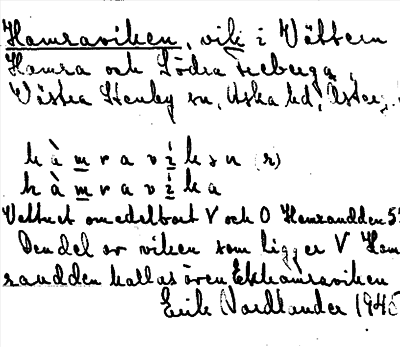 Hamraviken, vik i Vättern
Hamra och Södra Freberga,
Västra Stenby sn, Aska hd, Österg.
h à m r a v i k ə n (r)
h à m r a v i k a
Vattnet omedelbart V och O Hamraudden 5
Den del av viken som ligger V Ham
raudden kallas även Ekhamraviken
Erik Nordlander 1945